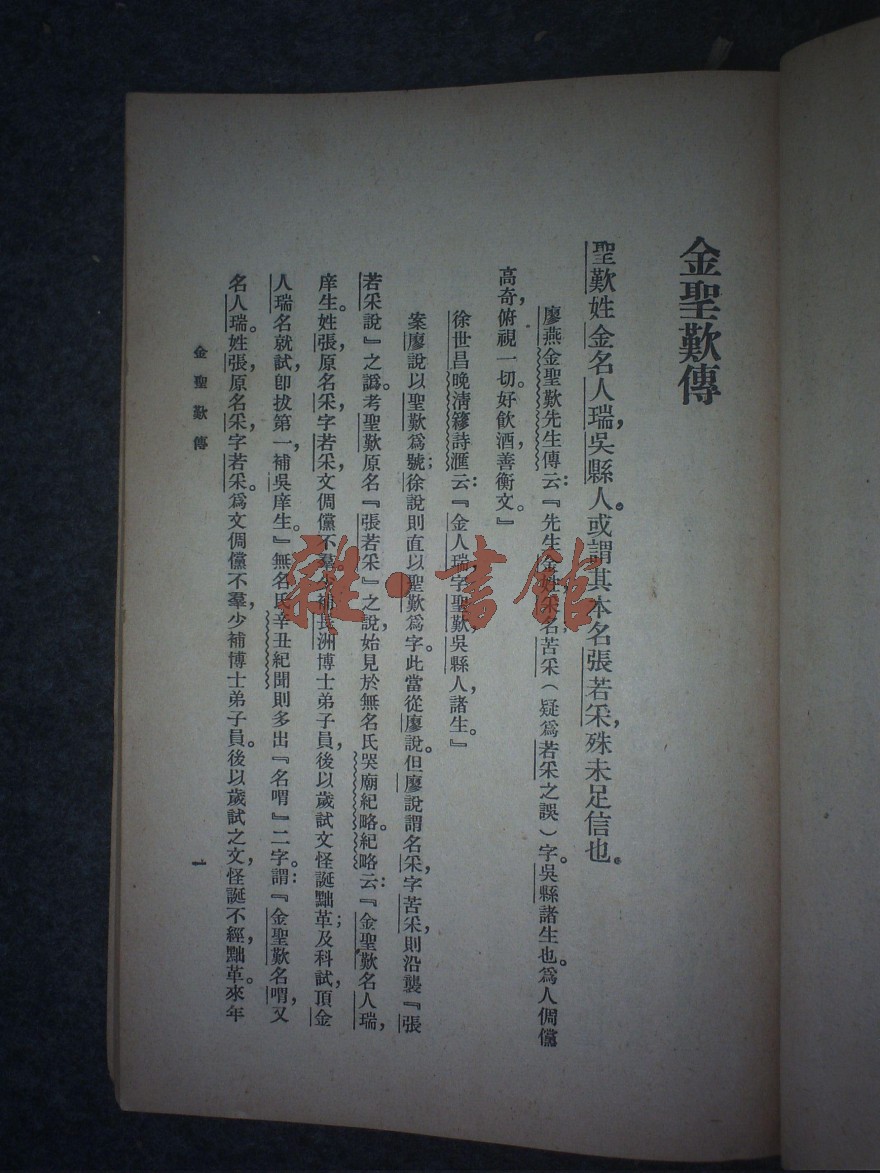 金聖歎傳
聖歎姓金名人瑞，吳縣人。或謂其本名張若采，殊未足信也。
廖燕金聖歎先生傳云：『先生金姓，采名，若采（疑爲若采之誤）字。吳縣諸生也。爲人倜儻
高奇，俯視一切。好飲酒，善衡文。』
徐世昌晚淸簃詩滙云：『金人瑞，字聖歎，吳縣人，諸生。』
案廖說以聖歎爲號；徐說則直以聖歎爲字。此當從廖說。但廖說謂名采，字苦采，則沿襲『張
若采說』之譌。考聖歎原名『張若采』之說，始見於無名氏哭廟紀略。紀略云：『金聖歎名人瑞，
庠生。姓張，原名采，字若采，文倜儻不羣，少補長洲博士弟子員，後以歲試文怪誕黜革；及科試，頂金
人瑞名就試，卽拔第一，補吳庠生。』無名氏辛丑紀聞則多出『名喟』二字。謂：『金聖歎名喟，又
名人瑞。姓張，原名采，字若采。爲文倜儻不羣，少補博士弟子員。後以歲試之文，怪誕不經，黜革。來年
金聖歎傳
一
雜·書館